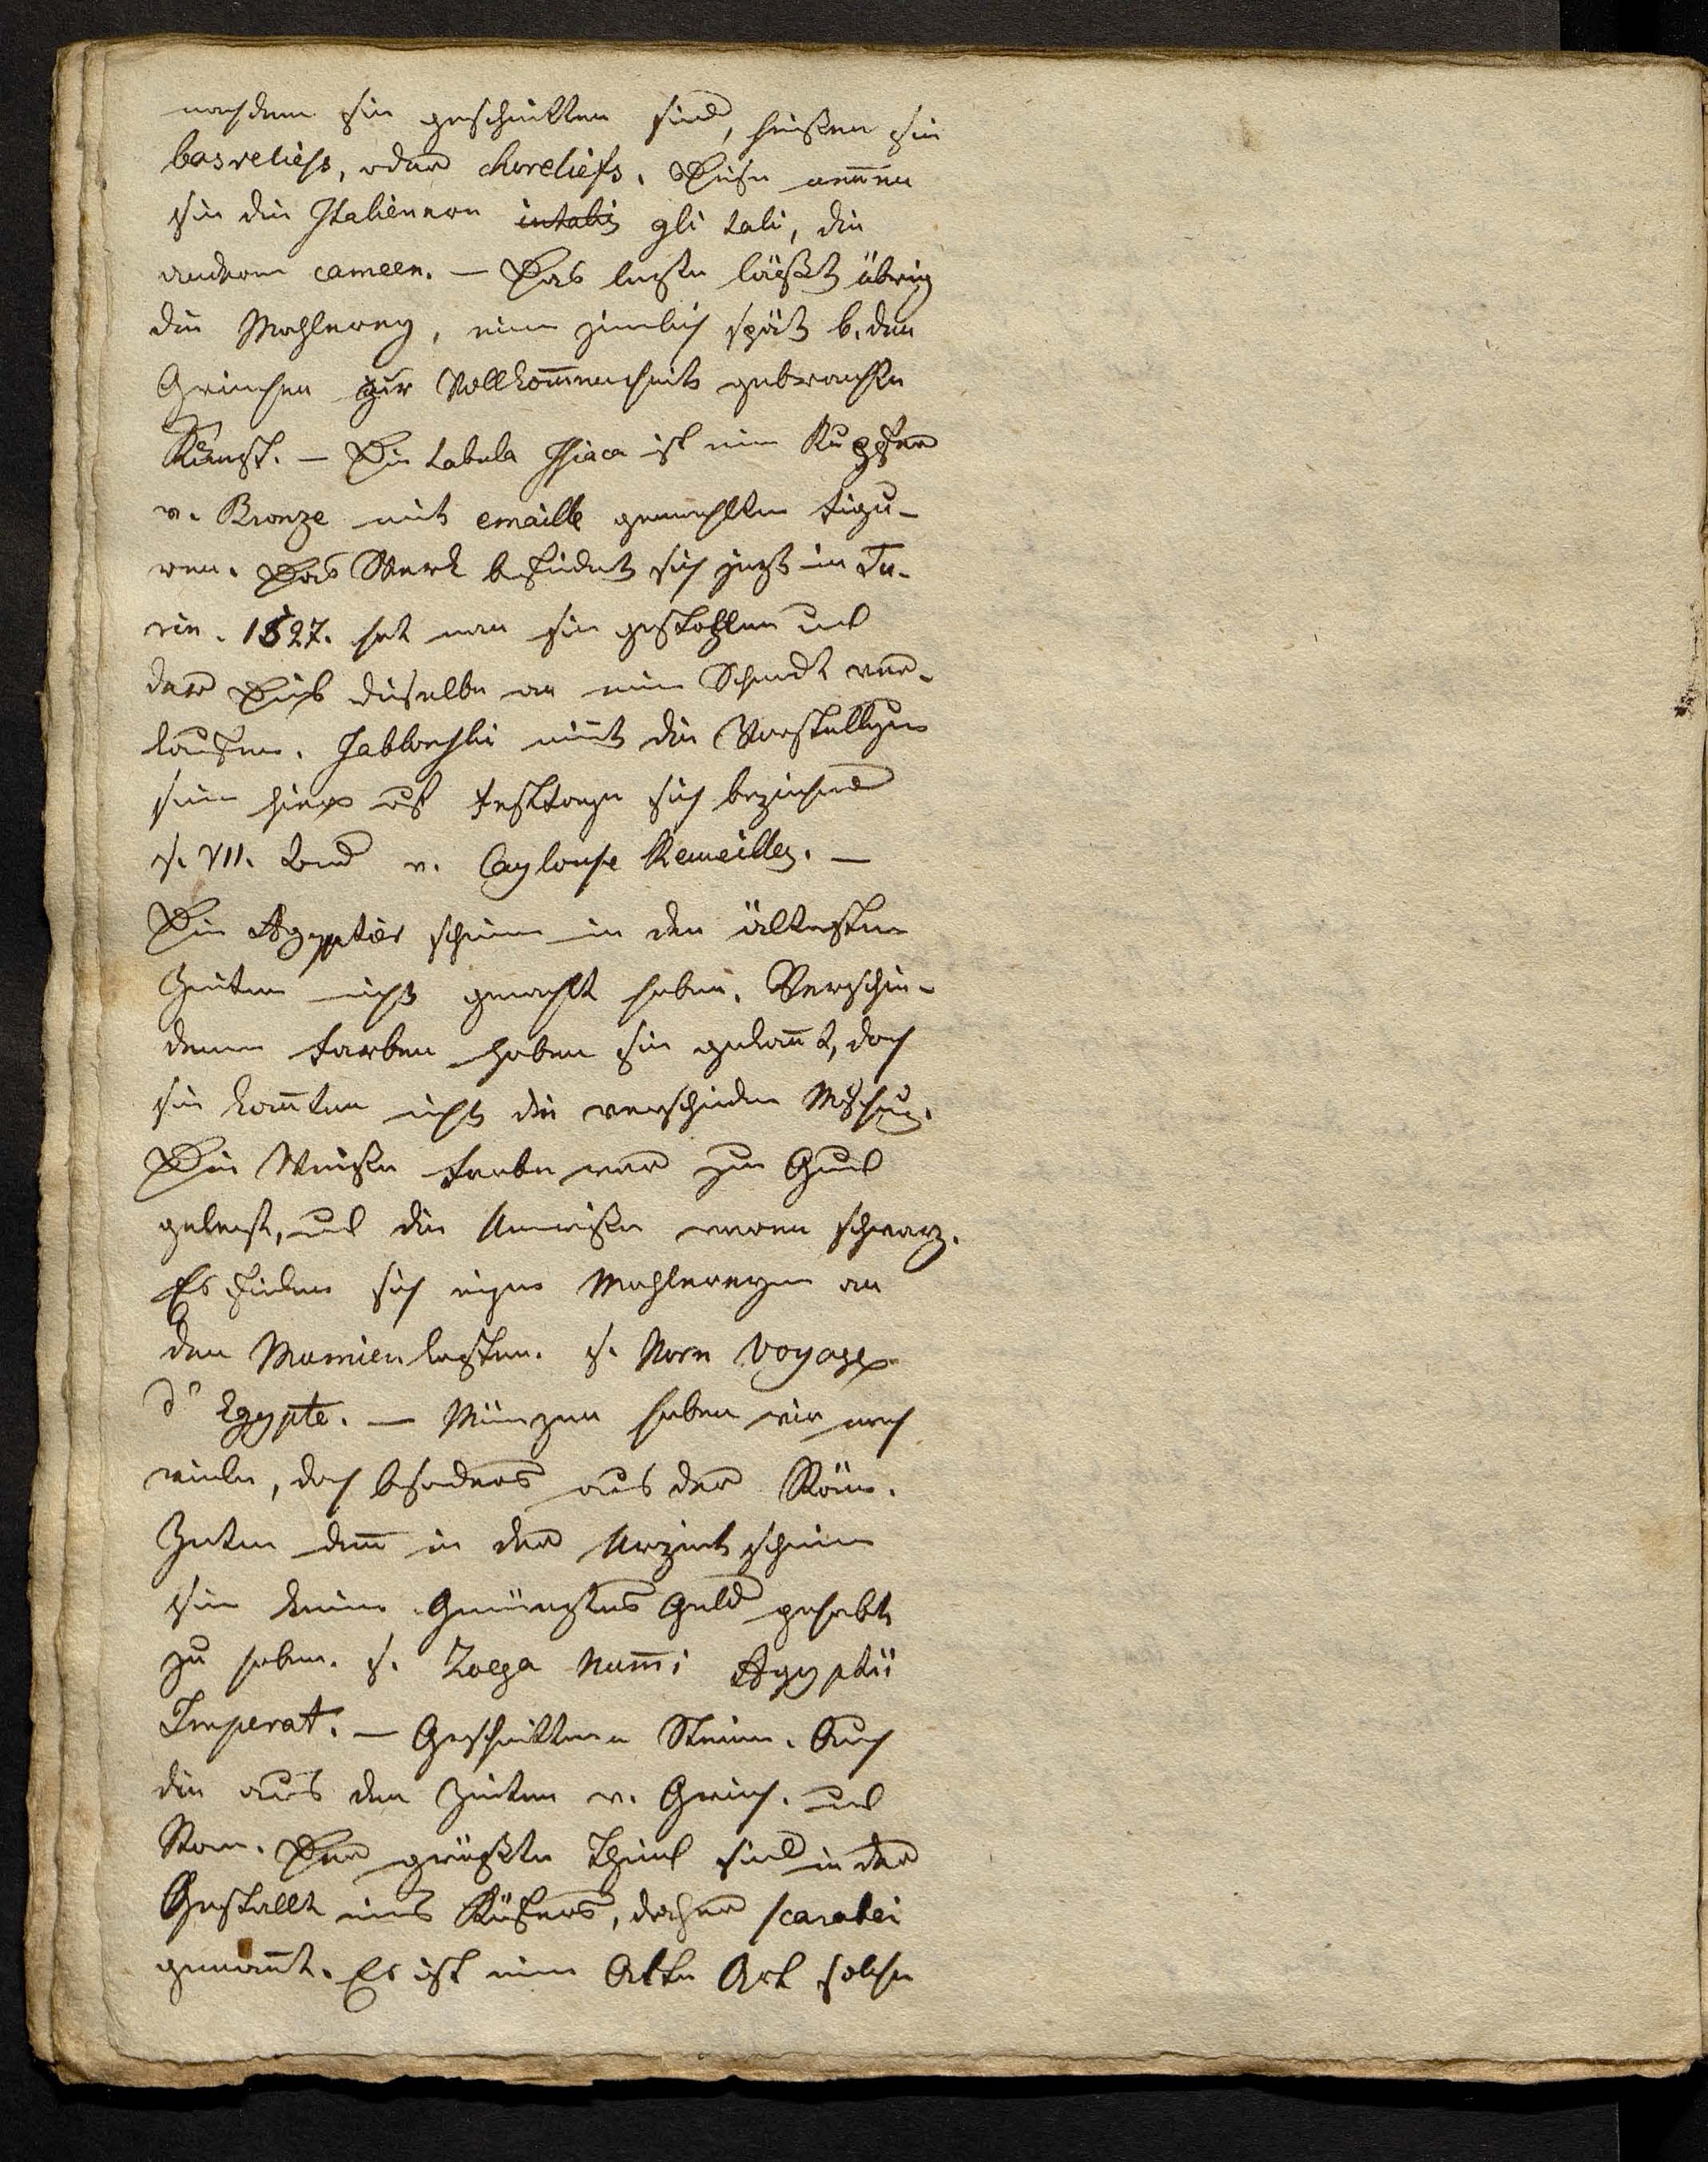 nachdem sie geschnitten sind, heißen sie
basreliefs, oder choreliefs. Diese neñen
sie die Italiener intalis gli tali, die
andern cameen. — Das letzte läßt übrig
die Mahlerey, eine zimlich spät b. den
Griechen zur Vollkom̃enheit gebrachte
Kunst. — Die tabula Isiaca ist eine Kupfer
v. Bronze mit emaille gemahlten Figu-
ren. Das Werk befindet sich jetzt in Tu-
rin. 1527. hat man sie gestohlen und
der Dieb dieselbe an einen Schmidt ver-
kaufen. Jablonski nim̃t die Vorstellgen
seien hier auf Festtage sich beziehend
s. VII. Band v. Caylouse Recueilles. —
Die Agyptier scheinen in den ältesten
Zeiten nicht gemahlt haben. Verschie-
dene Farben haben sie gekañt, doch
sie kañten nicht die verschieden Mischug.
Die Weiße Farbe war zu Gund
gelegt, und die Umriße waren schwarz.
Es finden sich einge Mahlereyen an
den Mumienkasten. s. Norn Voyage
d' Egypte. — Münzen haben wir noch
viele, doch besonders aus der Röm.
Zeiten deñ in der Urzeit scheinen
sie keine Gemünztes Geld gehabt
zu haben. s. Zoega Num̃i Agyptii
Imperat. — Geschnittene Steine. Auch
die aus den Zeiten v. Griech. und
Rom. Der größte Theil sind in der
Gestallt eines Käfers, daher scarabei
genañt. Es ist eine Alte Art solche